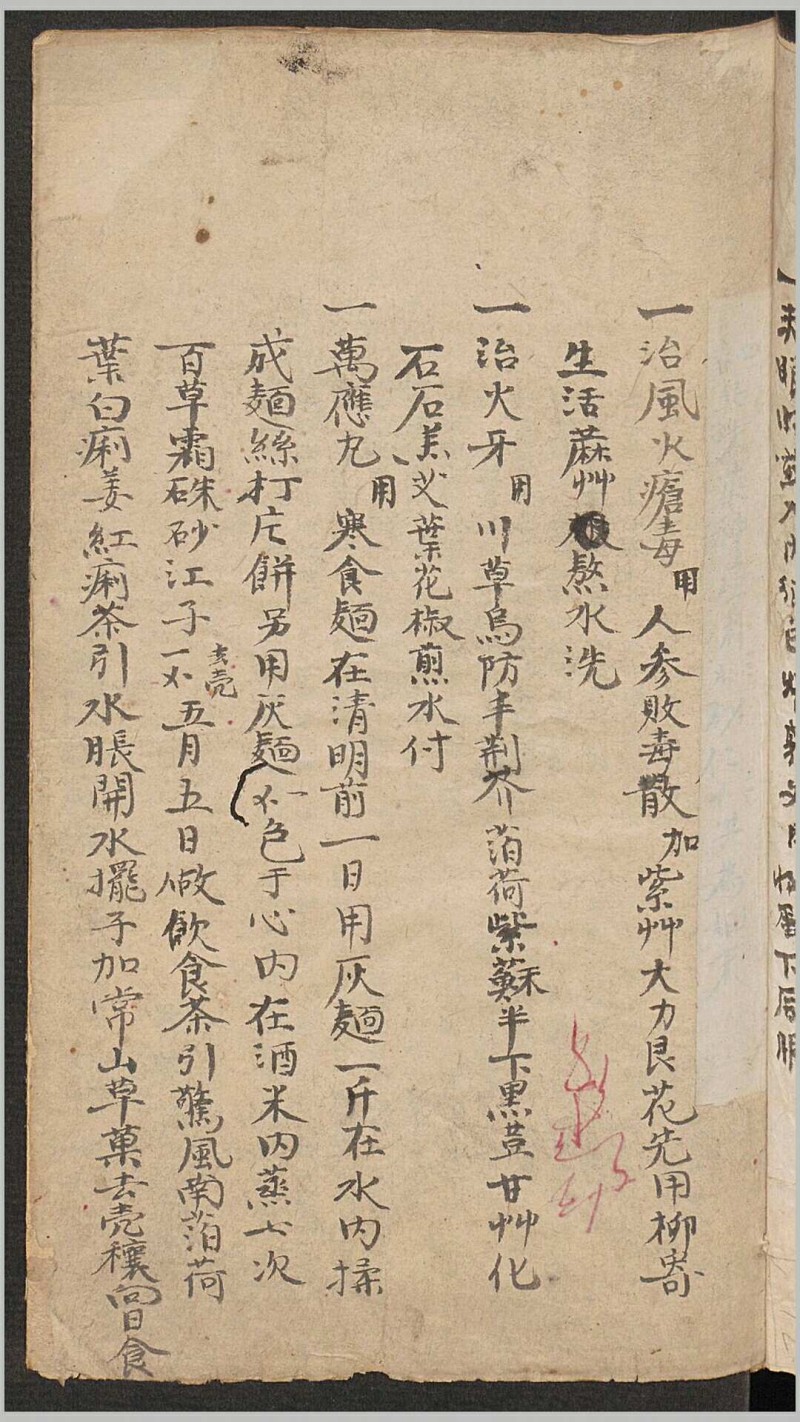 一治風火瘡毒用人参敗毒散加紫艸大力艮花先用柳寄
生活蔴艸熬水洗
一治火牙用川草烏防丰荆芥萡荷紫蘇半下黒荳甘艸化
石石羔艾葉花椒煎水付
一萬應丸用寒食麺在清明前一日用灰麺一斤在水内揉
成麺絲打片餅另用灰麺不一色于心内在酒米内蒸七次
百草霜硃砂江子一不去壳五月五日做飲食茶引驚風南萡荷
葉白痢姜紅痢茶引水脹開水擺子加常山草菓去壳穰向日食